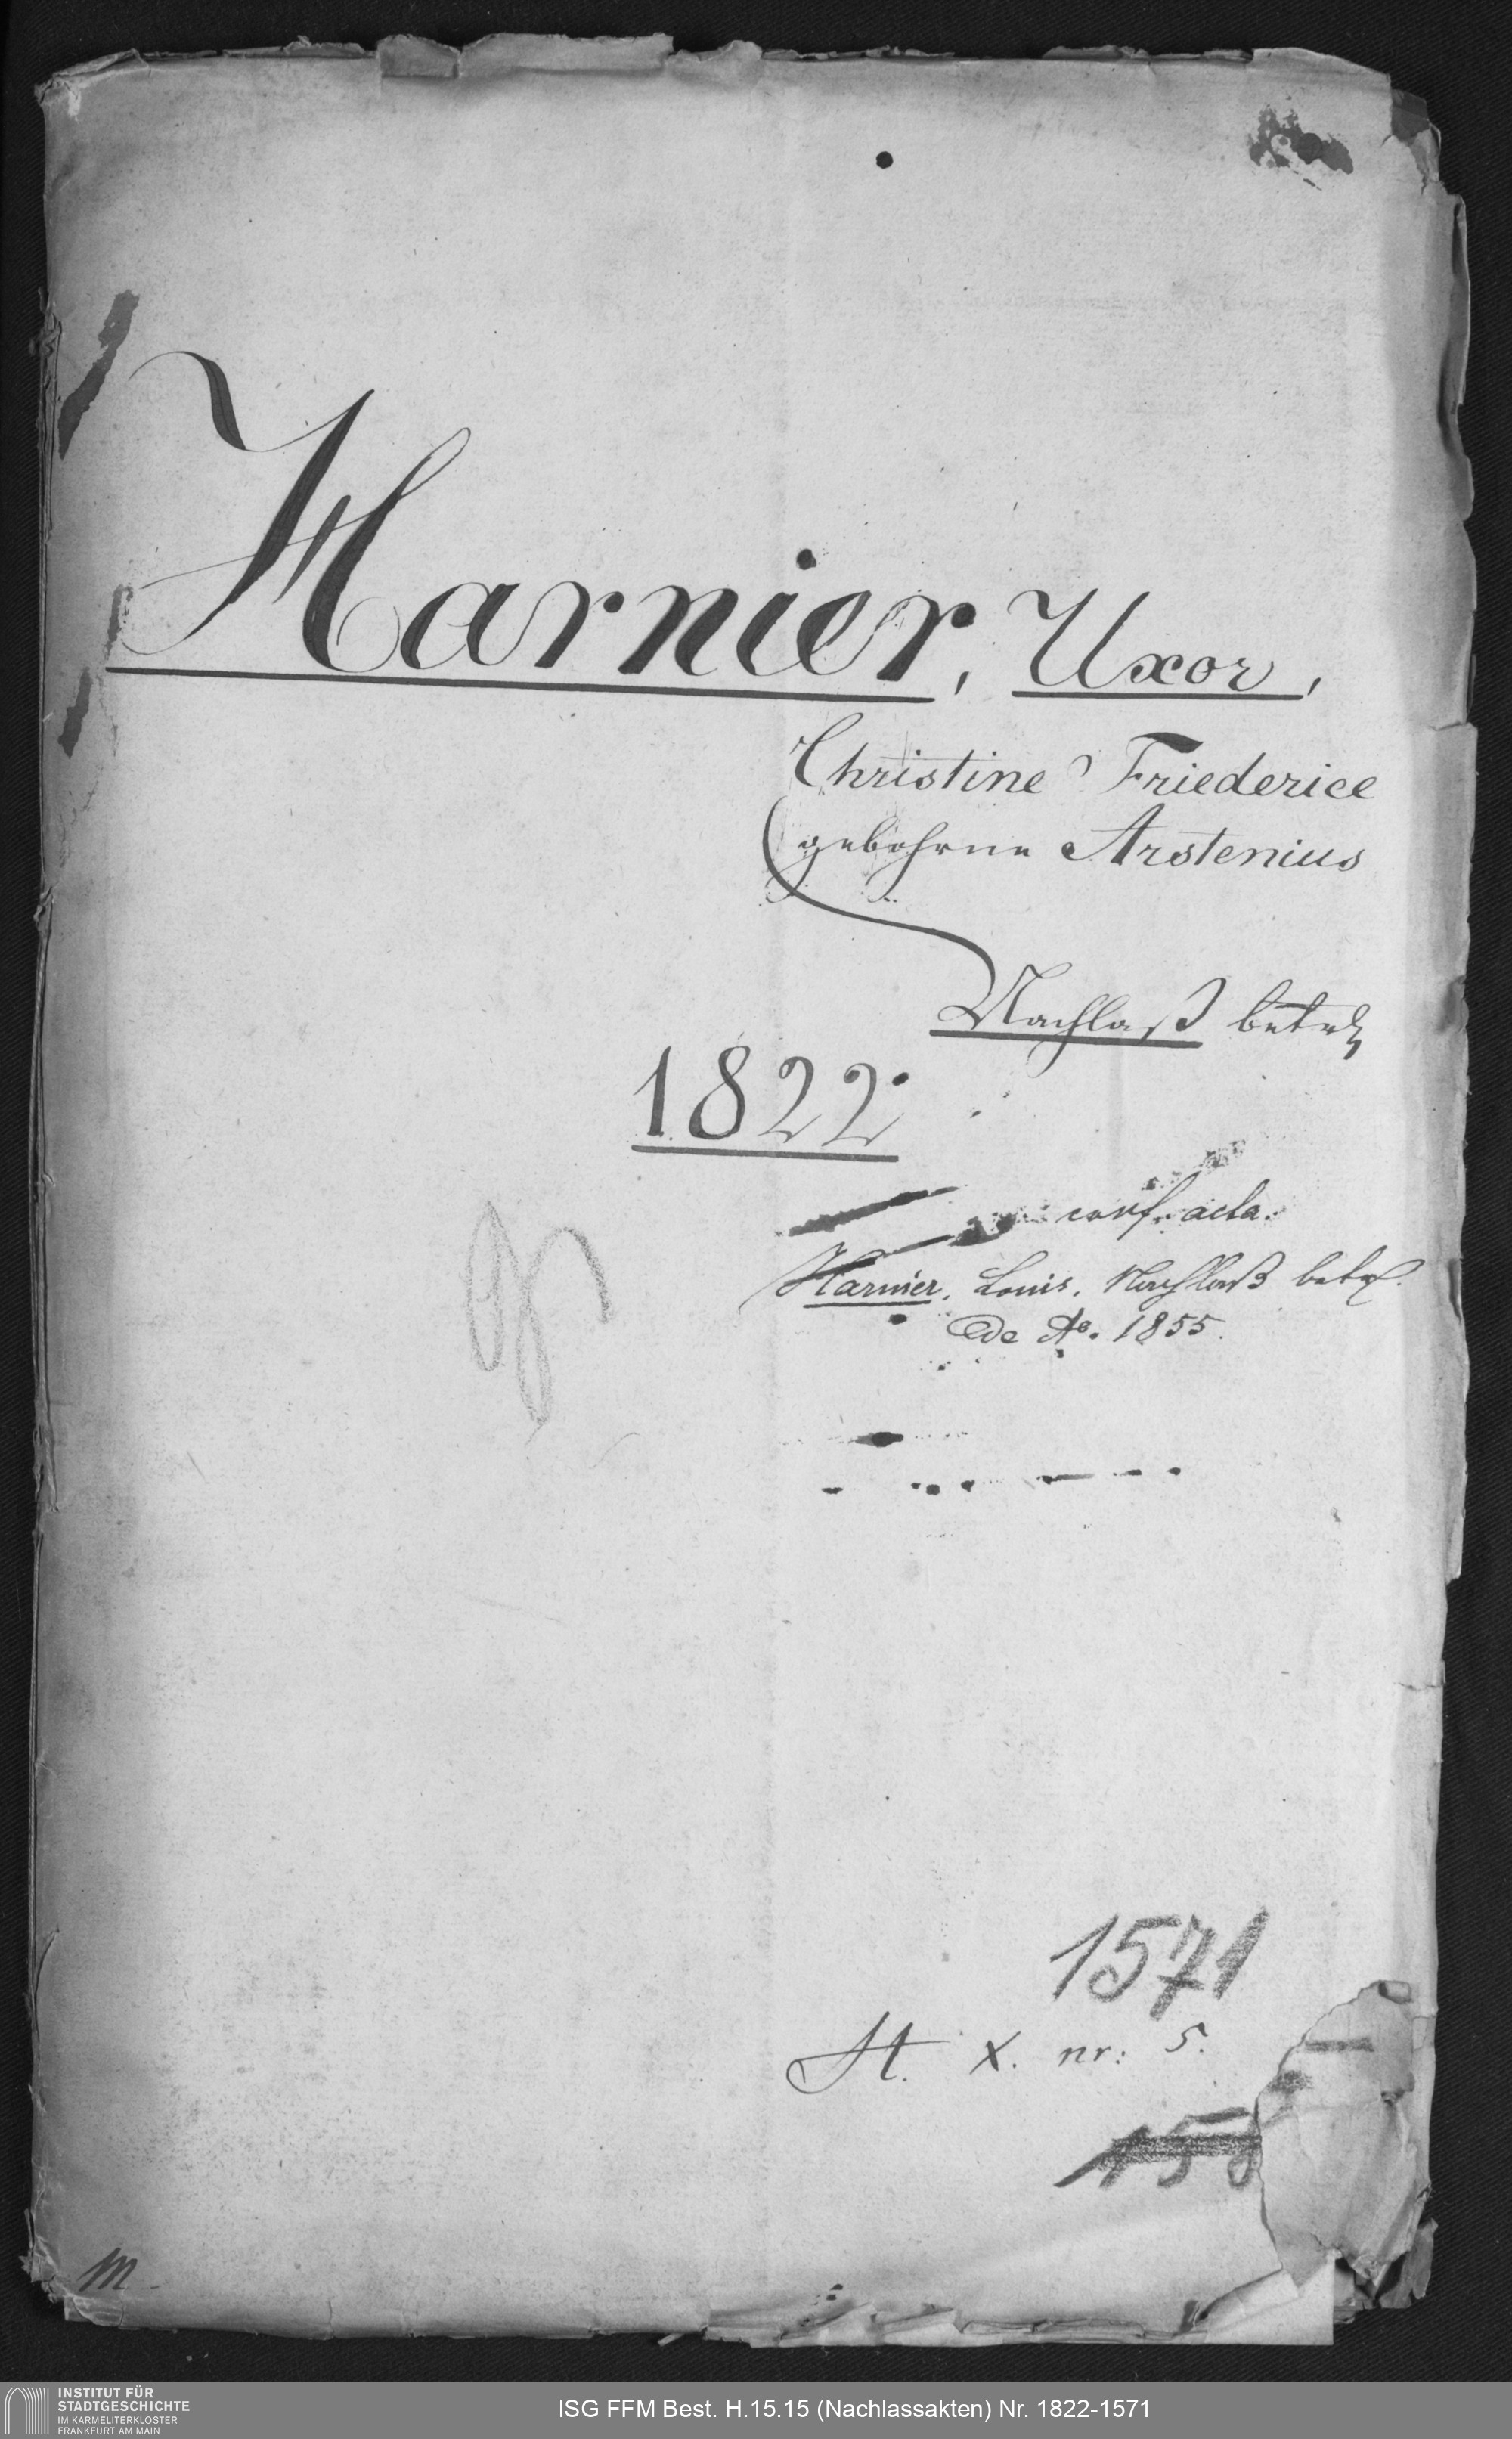 Harnier, Uxor,
Christine Friederice
gebohrne Arstenius
Nachlaß betr.
1822.
conf. acta.
Harnier, Louis, Nachlaß betr.
de Ao. 1855.
1571
H. X. nr: 5.
158
M
INSTITUT FÜR
STADTGESCHICHTE
IM KARMELITERKLOSTER
FRANKFURT AM MAIN
ISG FFM Best. H.15.15 (Nachlassakten) Nr. 1822-1571